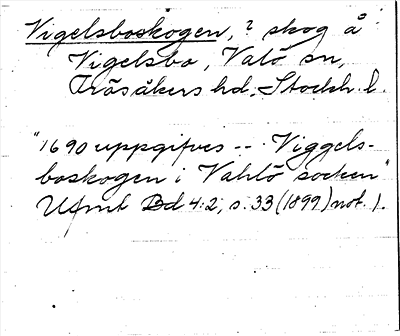 Vigelsboskogen, ? skog å
Vigelsbo, Valö sn,
Frösåkers hd, Stockh. l.
"1690 uppgifves -- Viggels-
boskogen i Vahlö socken"
Ufmt Bd 4:2, s. 33 (1899) not. 1.